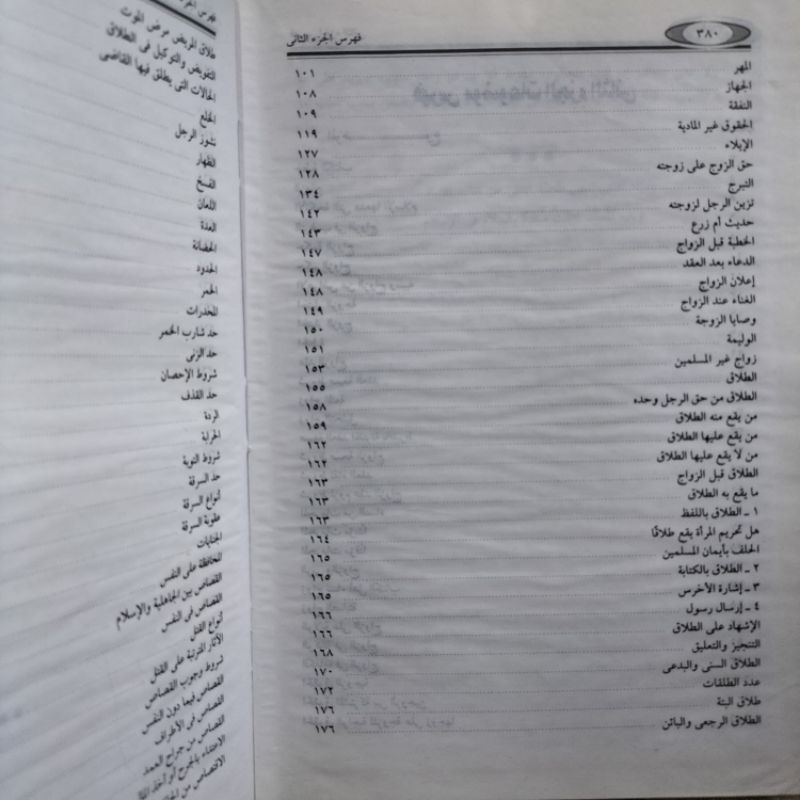 ٣٨٠ فهرس الجزء الثانى
المهر ١٠١
الجهاز ١٠٨
النفقة ١٠٩
الحقوق غير المادية ١١٩
الإيلاء ١٢٧
حق الزوج على زوجته ١٢٨
التبرج ١٣٤
تزين الرجل لزوجته ١٤٢
حديث أم زرع ١٤٣
الخطبة قبل الزواج ١٤٧
الدعاء بعد العقد ١٤٨
إعلان الزواج ١٤٨
الغناء عند الزواج ١٤٩
وصايا الزوجة ١٥٠
الوليمة ١٥١
زواج غير المسلمين ١٥٣
الطلاق ١٥٥
الطلاق من حق الرجل وحده ١٥٨
من يقع منه الطلاق ١٥٩
من يقع عليها الطلاق ١٦٢
من لا يقع عليها الطلاق ١٦٢
الطلاق قبل الزواج ١٦٣
ما يقع به الطلاق ١٦٣
١ ـ الطلاق باللفظ ١٦٣
هل تحريم المرأة يقع طلاقًا ١٦٤
الحلف بأيمان المسلمين ١٦٥
٢ ـ الطلاق بالكتابة ١٦٥
٣ ـ إشارة الأخرس ١٦٥
٤ ـ إرسال رسول ١٦٦
الإشهاد على الطلاق ١٦٦
التنجيز والتعليق ١٦٨
الطلاق السنى والبدعى ١٧٠
عدد الطلقات ١٧٢
طلاق البتة ١٧٦
الطلاق الرجعى والبائن ١٧٦
فهرس
طلاق المريض مرض الموت
التفويض والتوكيل فى الطلاق
الحالات التى يطلق فيها القاضى
الخلع
نشوز الرجل
الظهار
الفسخ
اللعان
العدة
الحضانة
الحدود
الخمر
المخدرات
حد شارب الخمر
حد الزنى
شروط الإحصان
حد القذف
الردة
الحرابة
شروط التوبة
حد السرقة
أنواع السرقة
عقوبة السرقة
الجنايات
المحافظة على النفس
القصاص بين الجاهلية والإسلام
القصاص فى النفس
أنواع القتل
الآثار المترتبة على القتل
شروط وجوب القصاص
القصاص فيما دون النفس
القصاص فى الأطراف
القصاص من جراح العمد
الاعتداء بالجرح أو أخذ
الاقتصاص من